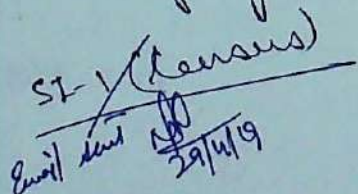 SI-1 (Census)
Email sent
29/4/19